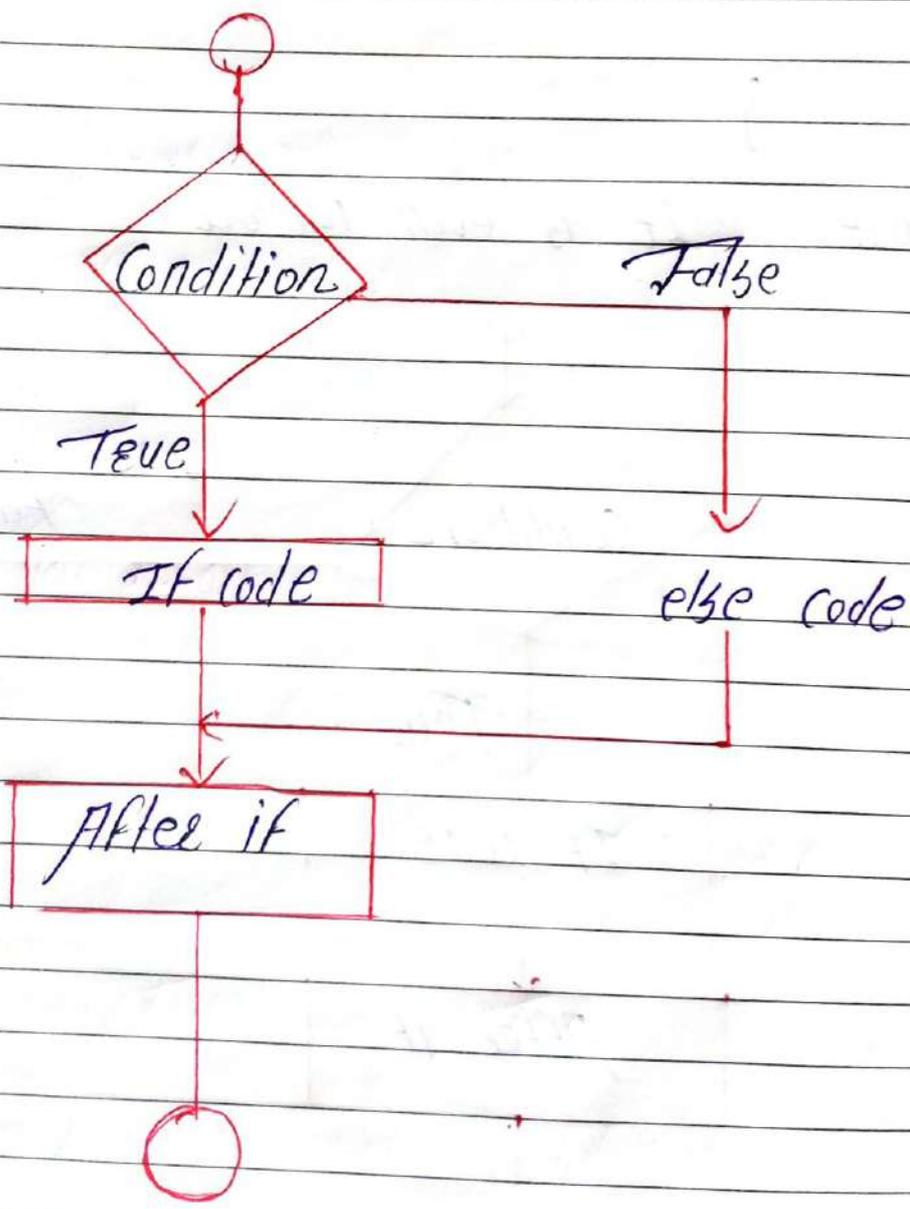 Condition
False
True
If code
else code
After if